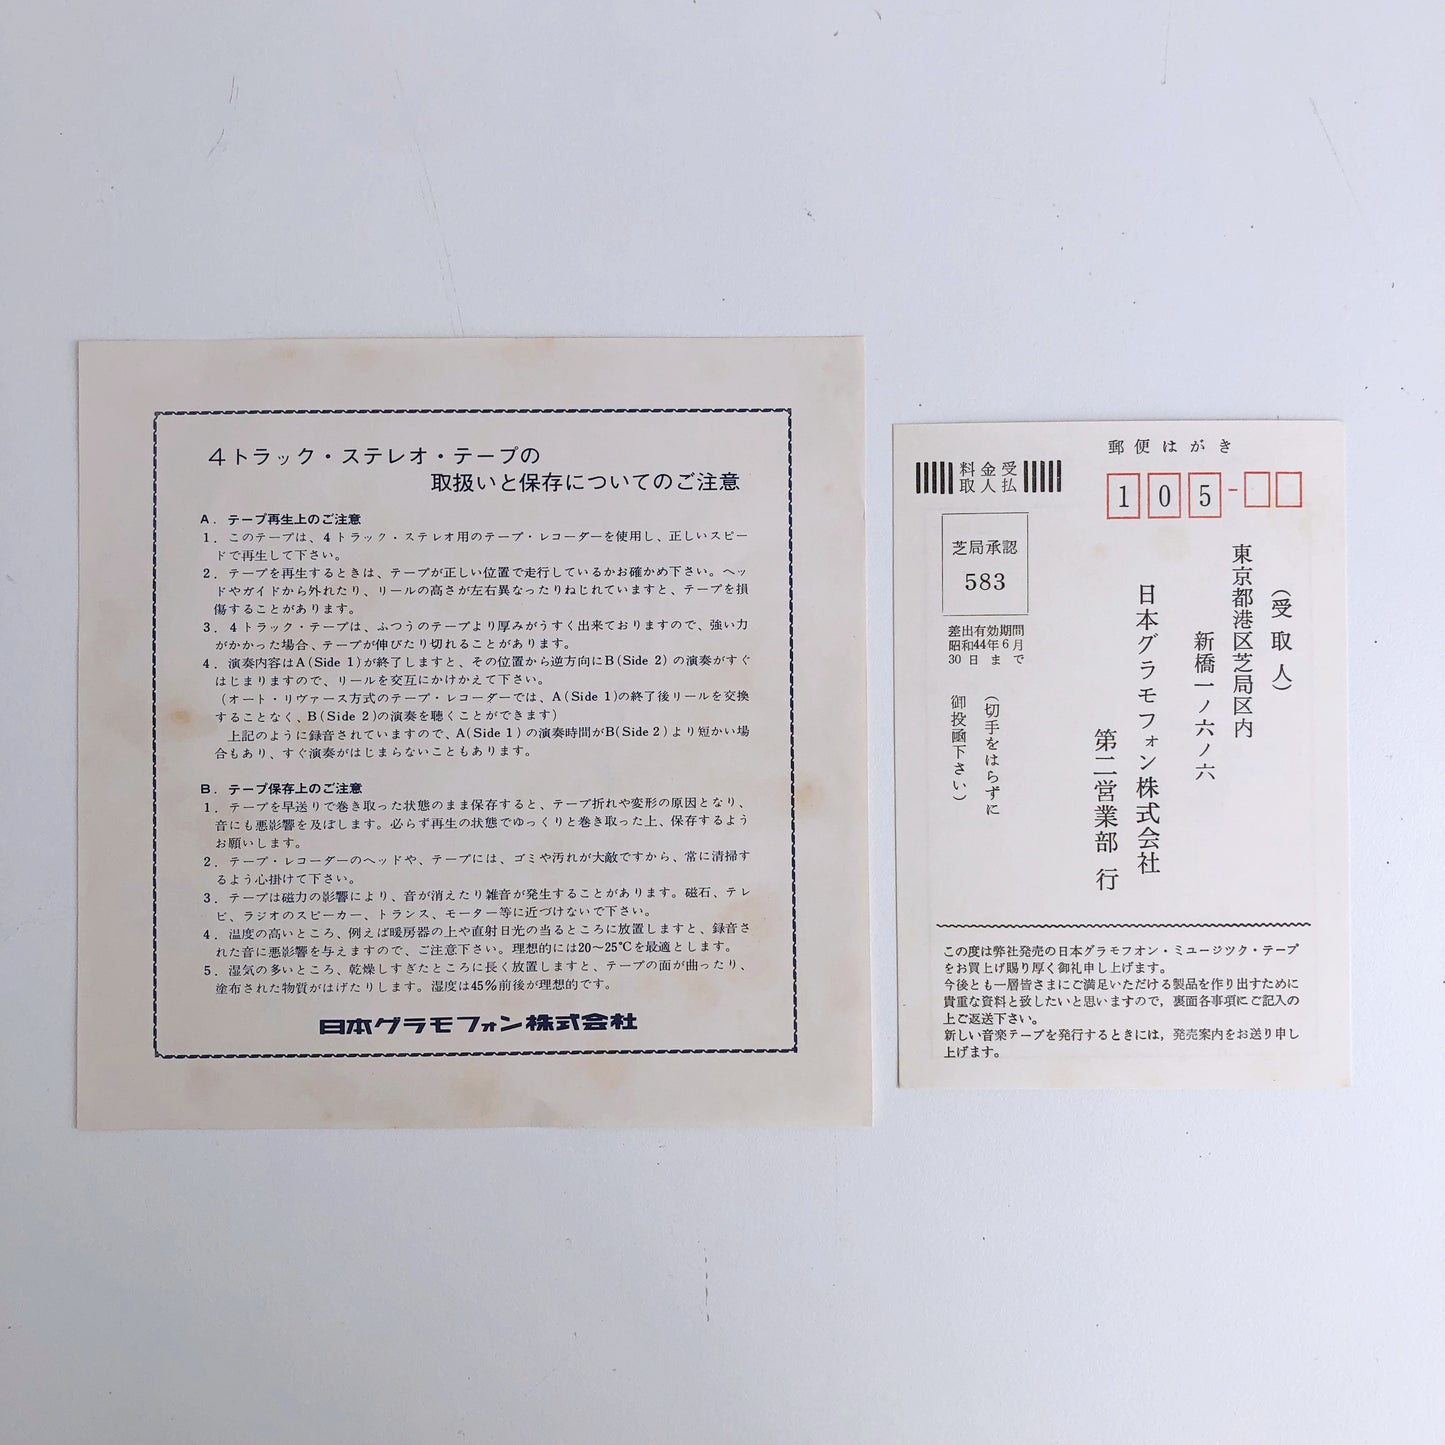 4トラック・ステレオ・テープの
取扱いと保存についてのご注意
A．テープ再生上のご注意
1．このテープは、4トラック・ステレオ用のテープ・レコーダーを使用し、正しいスピー
ドで再生して下さい。
2．テープを再生するときは、テープが正しい位置で走行しているかお確かめ下さい。ヘッ
ドやガイドから外れたり、リールの高さが左右異なったりねじれていますと、テープを損
傷することがあります。
3．4トラック・テープは、ふつうのテープより厚みがうすく出来ておりますので、強い力
がかかった場合、テープが伸びたり切れることがあります。
4．演奏内容はA(Side 1)が終了しますと、その位置から逆方向にB(Side 2)の演奏がすぐ
はじまりますので、リールを交互にかけかえて下さい。
(オート・リヴァース方式のテープ・レコーダーでは、A(Side 1)の終了後リールを交換
することなく、B(Side 2)の演奏を聴くことができます)
上記のように録音されていますので、A(Side 1)の演奏時間がB(Side 2)より短かい場
合もあり、すぐ演奏がはじまらないこともあります。
B．テープ保存上のご注意
1．テープを早送りで巻き取った状態のまま保存すると、テープ折れや変形の原因となり、
音にも悪影響を及ぼします。必らず再生の状態でゆっくりと巻き取った上、保存するよう
お願いします。
2．テープ・レコーダーのヘッドや、テープには、ゴミや汚れが大敵ですから、常に清掃す
るよう心掛けて下さい。
3．テープは磁力の影響により、音が消えたり雑音が発生することがあります。磁石、テレ
ビ、ラジオのスピーカー、トランス、モーター等に近づけないで下さい。
4．温度の高いところ、例えば暖房器の上や直射日光の当るところに放置しますと、録音さ
れた音に悪影響を与えますので、ご注意下さい。理想的には20〜25℃を最適とします。
5．湿気の多いところ、乾燥しすぎたところに長く放置しますと、テープの面が曲ったり、
塗布された物質がはげたりします。湿度は45％前後が理想的です。
日本グラモフォン株式会社
郵便はがき
料金受
取人払
105-
芝局承認
583
差出有効期間
昭和44年6月
30日まで
(受取人)
東京都港区芝局区内
新橋一ノ六ノ六
日本グラモフォン株式会社
第二営業部 行
(切手をはらずに
御投函下さい)
この度は弊社発売の日本グラモフオン・ミユージツク・テープ
をお買上げ賜り厚く御礼申し上げます。
今後とも一層皆さまにご満足いただける製品を作り出すために
貴重な資料と致したいと思いますので，裏面各事項にご記入の
上ご返送下さい。
新しい音楽テープを発行するときには，発売案内をお送り申し
上げます。